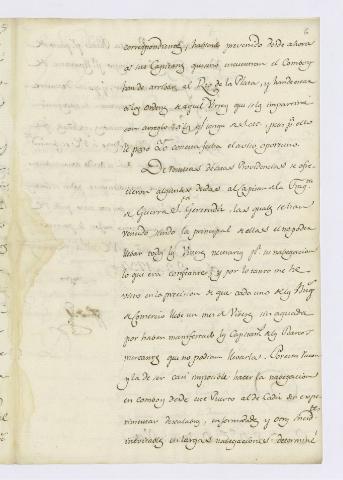 6
correspondientes, haviendo prevenido desde ahora
a sus Capitanes que sino encuentran el Comboy
han de arribar al Rio de la Plata, y han de estar
a las ordenes de aquel Virrey que se las impartirá
con arreglo a
le paso a convenir fuera el aviso oportuno.
De resultas de estas Providencias se ofre-
cieron algunas dudas al Capitan de la Frag.ta
de Guerra S.ta Gertrudis, las quales se han
venido siendo la principal de ellas el no poder
llebar todos los Viveres necesarios p.a su navegacion
lo que era constante, y por lo tanto me he
visto en la precision de que cada uno de los Buq.s
de Comercio llebe un mes de Viveres sin aguada
por haber manifestado los Capitan.s de los Barcos
mercantes que no podian llevarla. Por esta razon
y la de ser casi imposible hacer la navegacion
en comboy desde este Puerto al de Cadiz sin expe-
rimentar escaseses, enfermedades y otros incid.tes
inevitables en largas navegaciones determiné